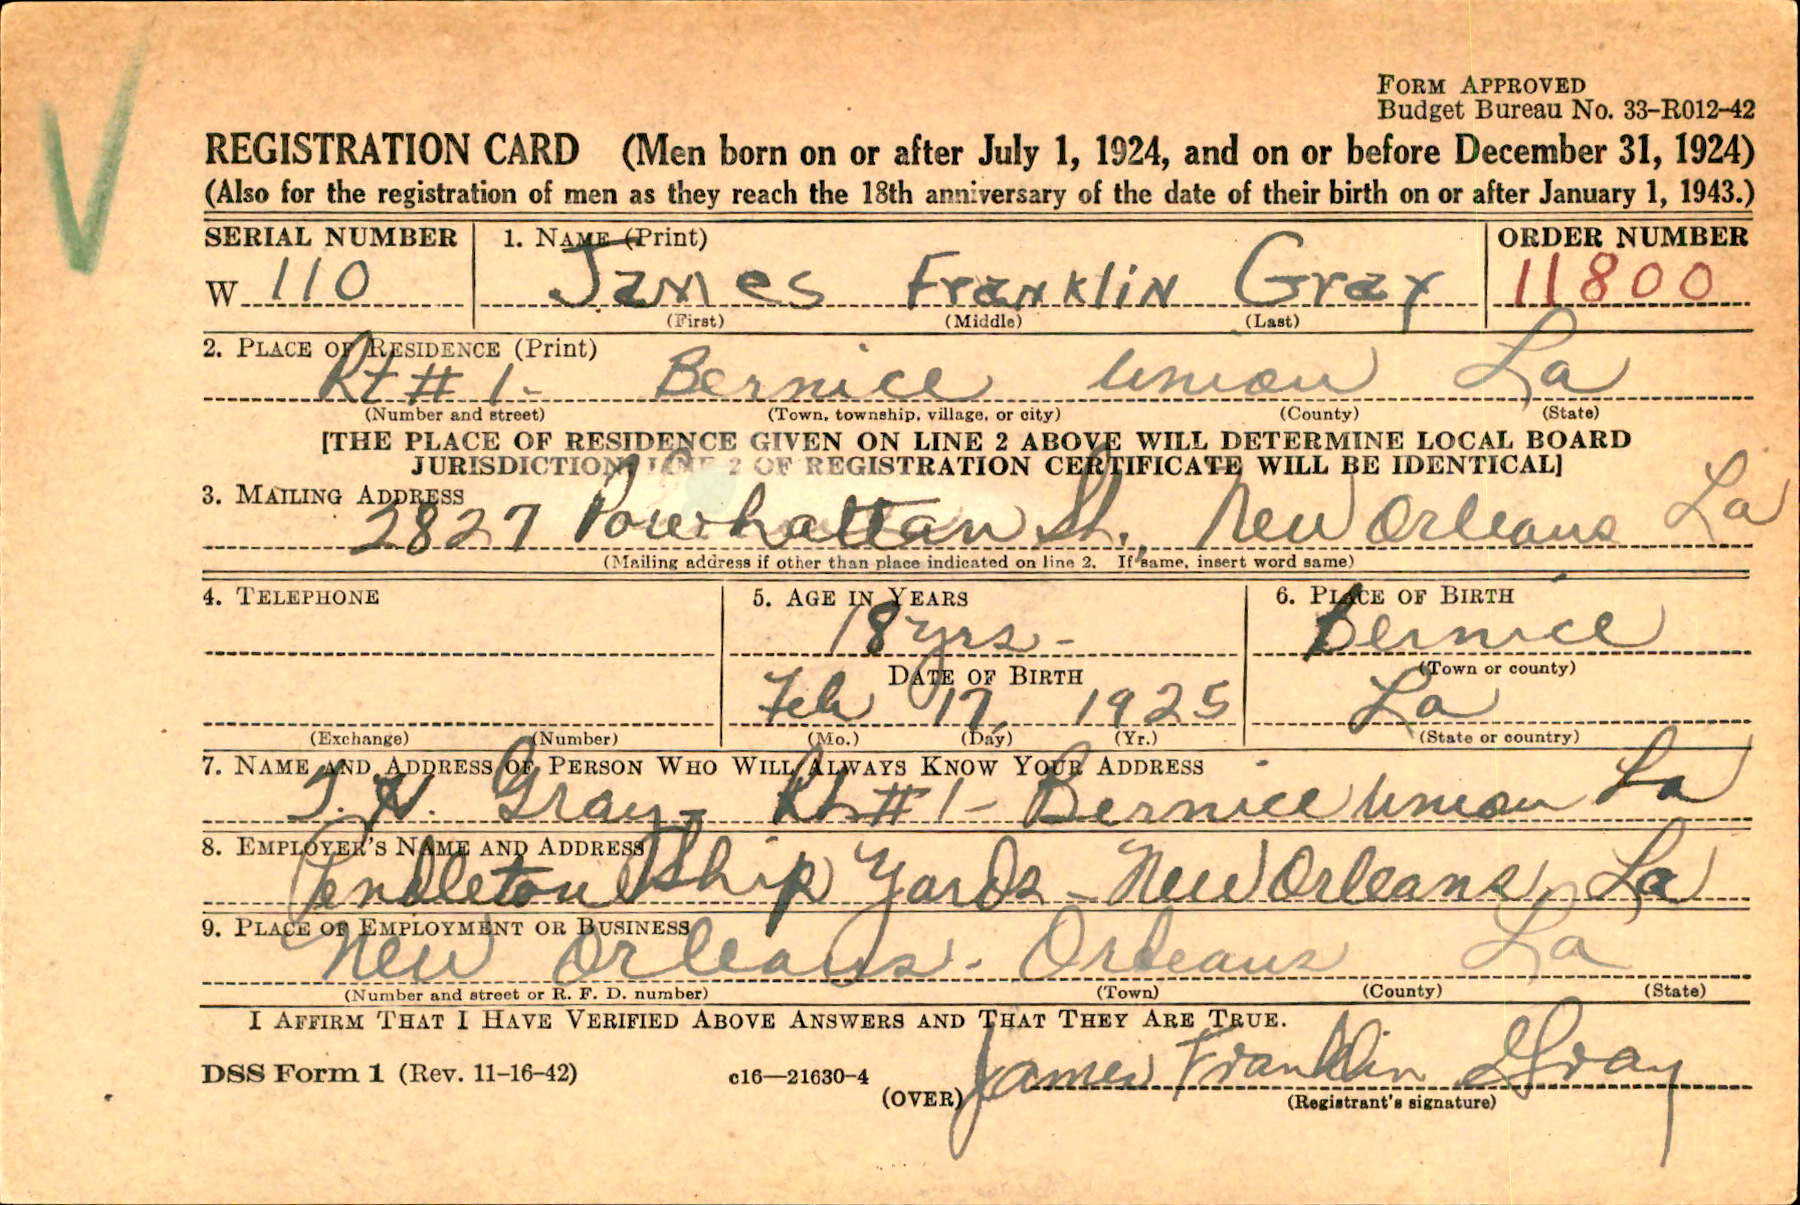 FORM APPROVED
Budget Bureau No. 33–R012–42
REGISTRATION CARD (Men born on or after July 1, 1924, and on or before December 31, 1924)
(Also for the registration of men as they reach the 18th anniversary of the date of their birth on or after January 1, 1943.)
SERIAL NUMBER 1. NAME (Print) ORDER NUMBER
W 110 James Franklin Gray 11800
(First) (Middle) (Last)
2. PLACE OF RESIDENCE (Print)
Rt # 1 - Bernice Union La
(Number and street) (Town, township, village, or city) (County) (State)
[THE PLACE OF RESIDENCE GIVEN ON LINE 2 ABOVE WILL DETERMINE LOCAL BOARD
JURISDICTION; LINE 2 OF REGISTRATION CERTIFICATE WILL BE IDENTICAL]
3. MAILING ADDRESS
2827 Powhattan St., New Orleans La
(Mailing address if other than place indicated on line 2. If same, insert word same)
4. TELEPHONE 5. AGE IN YEARS 6. PLACE OF BIRTH
18 yrs - Bernice
DATE OF BIRTH (Town or county)
Feb 17, 1925 La
(Exchange) (Number) (Mo.) (Day) (Yr.) (State or country)
7. NAME AND ADDRESS OF PERSON WHO WILL ALWAYS KNOW YOUR ADDRESS
Gray - Rt # 1 - Bernice Union La
8. EMPLOYER'S NAME AND ADDRESS
Pendleton Ship Yards - New Orleans, La
9. PLACE OF EMPLOYMENT OR BUSINESS
New Orleans - Orleans La
(Number and street or R. F. D. number) (Town) (County) (State)
I AFFIRM THAT I HAVE VERIFIED ABOVE ANSWERS AND THAT THEY ARE TRUE.
DSS Form 1 (Rev. 11-16-42) c16—21630-4 (OVER) James Franklin Gray
(Registrant's signature)